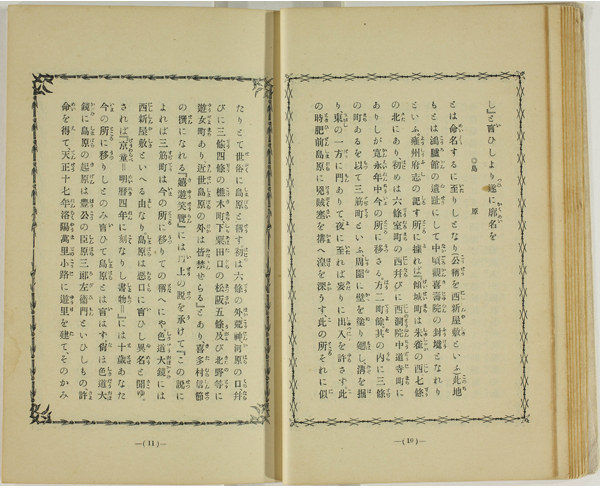 し』と言ひしより遂に廓名を
◎島原
とは命名するに至りしとなり(公稱を西新屋敷といふ)此地
もとは鴻臚館の遺趾にして中頃歡喜壽院の封境となれり
といふ、雍州府志の記す所に據れば『傾城町は朱雀の西七條
の北にあり初めは六條室町の西幷びに西洞院中道寺町に
ありしが寛永年中今の所に移さる、方二町餘其の内に三條
の町あるを以て三筋町といふ周圍に壁を塗り廻し、溝を掘
り東の一方に門ありて夜に至れば妄りに出入を許さず此
の時肥前島原に兇賊塞を搆へ湟を深うす、此の所それに似
—(10)—
たりとて世俗に島原と稱す初は六條の外荒神河原の口幷
びに三條四條の樵木町下粟田口の松阪五條及び北野等に
遊女町あり近世島原の外は皆禁せらる』とあり喜多村信節
の撰になれる『嬉遊笑覽』には以上の説を承けて『この説に
よれば三筋町は今の所に移りての稱へにや色道大鏡には
西新屋敷といへる由なり島原は惡口に言ひし異名と聞ゆ、
されば『京童』=明暦四年に刻なりし書物=には十歳あなた
今の所に移りしとのみ言ひて島原とは言はず、猶ほ色道大
鏡に島原の起原は豐公の臣原三郎左衛門といひしもの、許
命を得て天正十七年洛陽萬里小路に遊里を建て、そのかみ
—(11)—